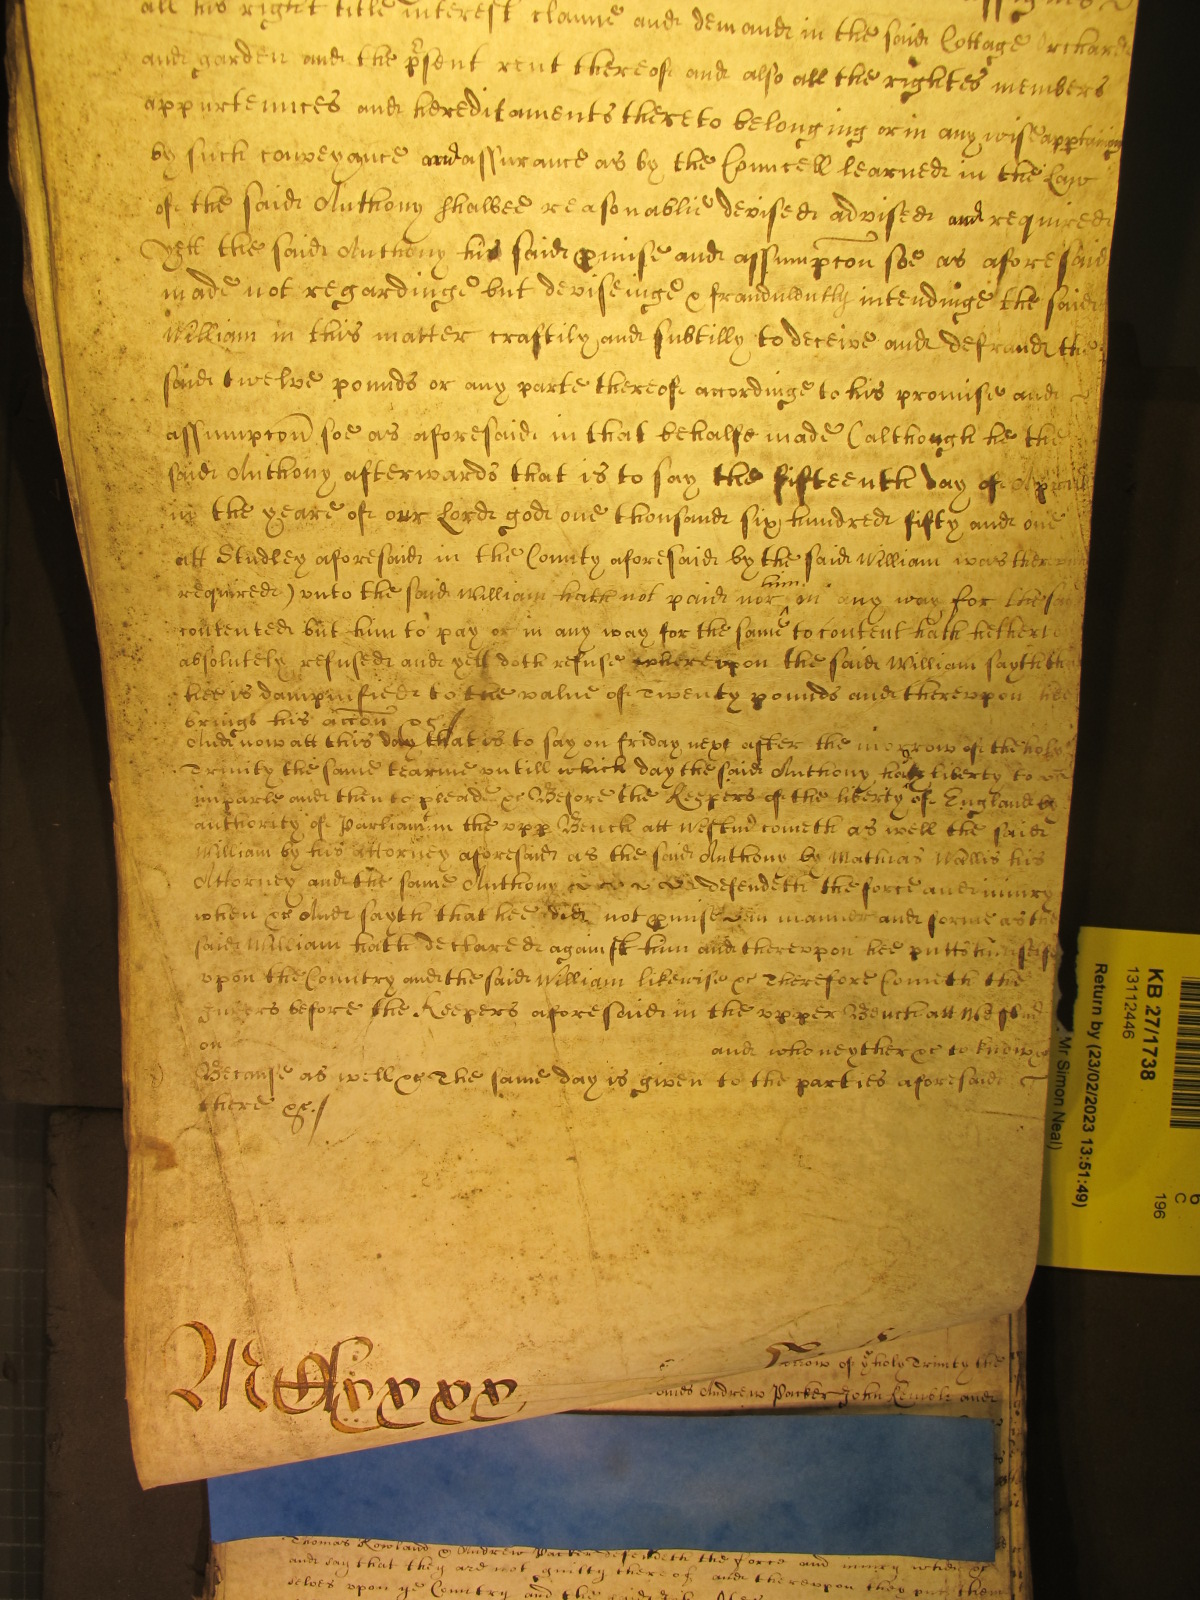 all his right title interest clayme and demand in the said Cottage Orchard
and garden and the p̃sent rent thereof and also all the rightes members
appurtennces and hereditaments thereto belonging or in any wise appertaining
by such conveyance and assurance as by the Councell learned in the Law
of the said Anthony shalbee reasonablie devised advised and required
Yett the said Anthony his said pmise and assumpcon soe as aforesaid
made not regardinge but deviseinge & fraudulently intendinge the said
William in this matter craftily and subtilly to deceive and defraud the
said twelve pounds or any parte thereof accordinge to his promise and
assumpcon soe as aforesaid in that behalfe made (although he the
said Anthony afterwards that is to say the fifteenth day of Aprill
in the yeare of our Lord god one thousand six hundred fifty and one
att Studley aforesaid in the County aforesaid by the said William was thereunto
required) unto the said William hath not paid nor him in any way for the same
contented but him to pay or in any way for the same to content hath hetherto
absolutely refused and yett doth refuse whereupon the said William sayth that
hee is dampnified to the value of Twenty pounds and thereupon hee
brings his accon &c/
And now att this day that is to say on friday next after the morrow of the holy
Trinity the same tearme untill which day the said Anthony had liberty to
imparle and then to pleade &c Before the Keepers of the liberty of England by
authority of Parliamt in the upp Bench att Westmr cometh as well the said
William by his attorney aforesaid as the said Anthony by Mathias Wallis his
Attorney and the same Anthony defendeth the force and iniury
when &c And sayth that hee did not pmise in manner and forme as the
said William hath declared against him and thereupon hee putts himselfe
upon the Country and the said William likewise &c Therefore Cometh the
Jurors before the Keepers aforesaid in the upper Bench att Westmr
on and who neyther &c to know
Because as well &c The same day is given to the parties aforesaid
there &c/
morrow of ye holy Trinity the
Andrew Parker John Kemble and
Thomas Rowland & Andrew Parker defendeth the force and iniury when &c
and say that they are not guilty thereof and thereupon they putt them
selves upon ye Country and the said
KB 27/1738
13112446
Return by (23/02/2023 13:51:49)
Mr Simon Neal)
6
C
196